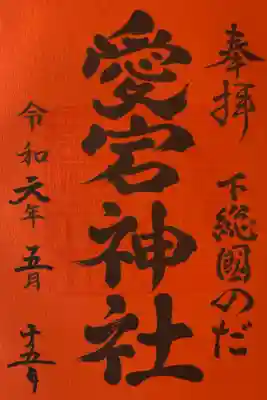 奉拝
下総國のだ
愛宕神社
令和元年
五月
十五日